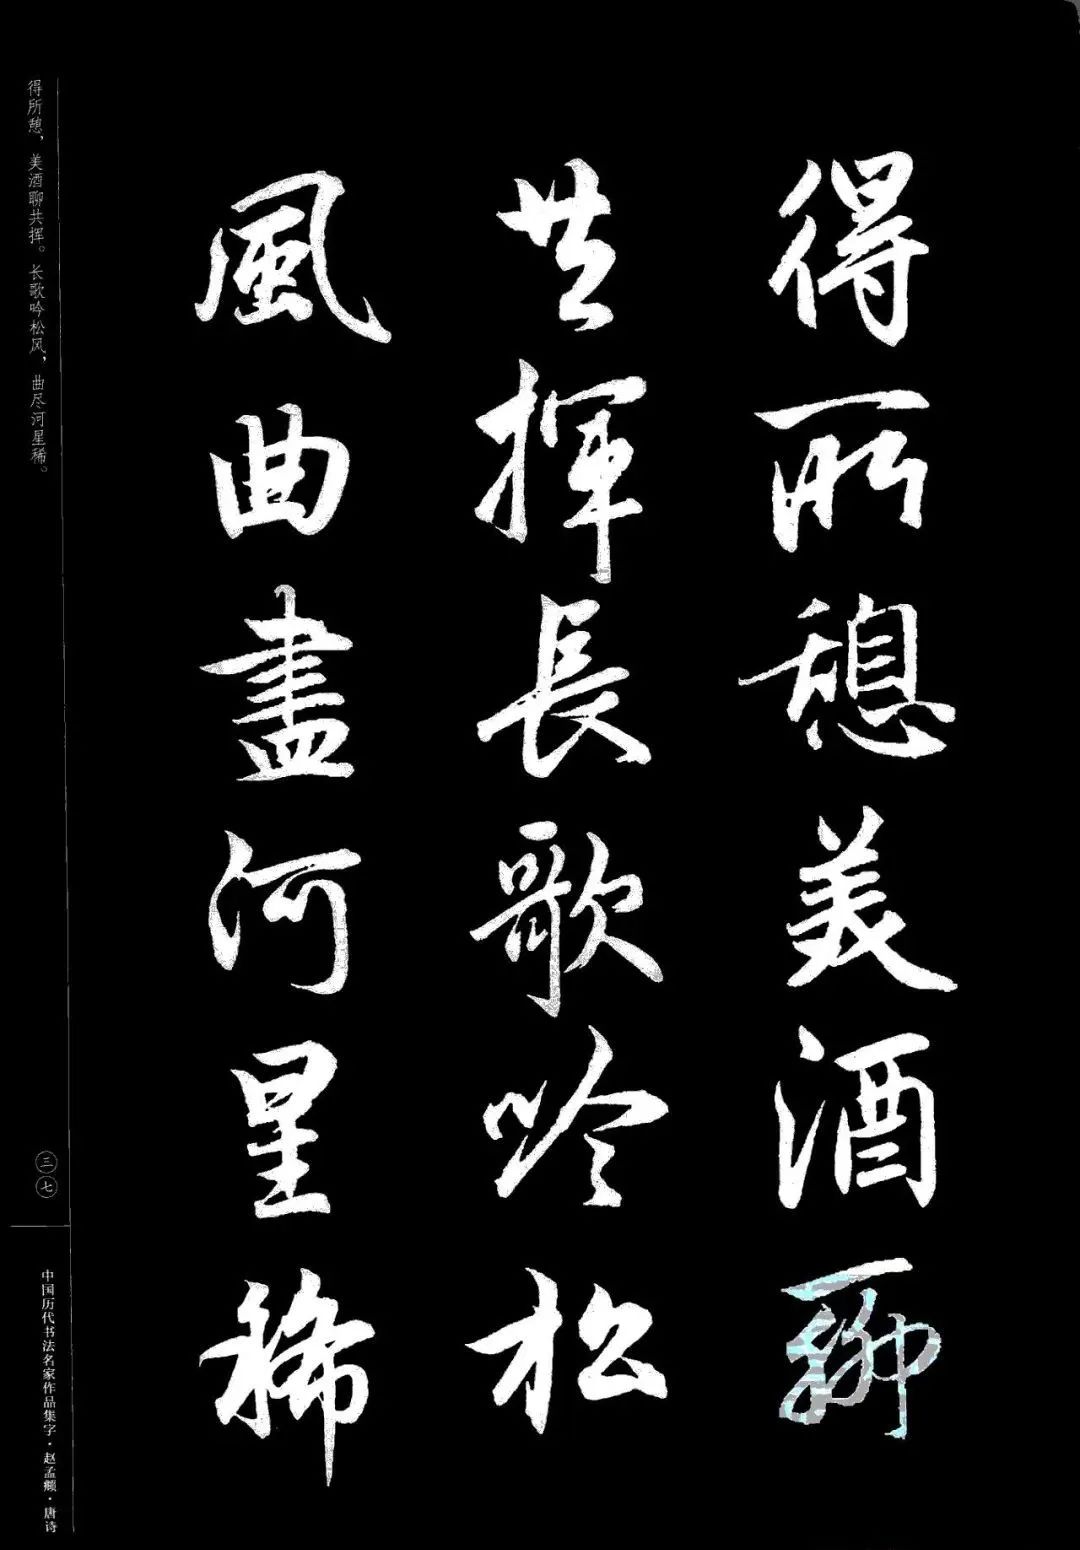 得所憩美酒聊
共揮長歌吟松
風曲盡河星稀
得所憩，美酒聊共挥。长歌吟松风，曲尽河星稀。
三七
中国历代书法名家作品集字·赵孟頫·唐诗